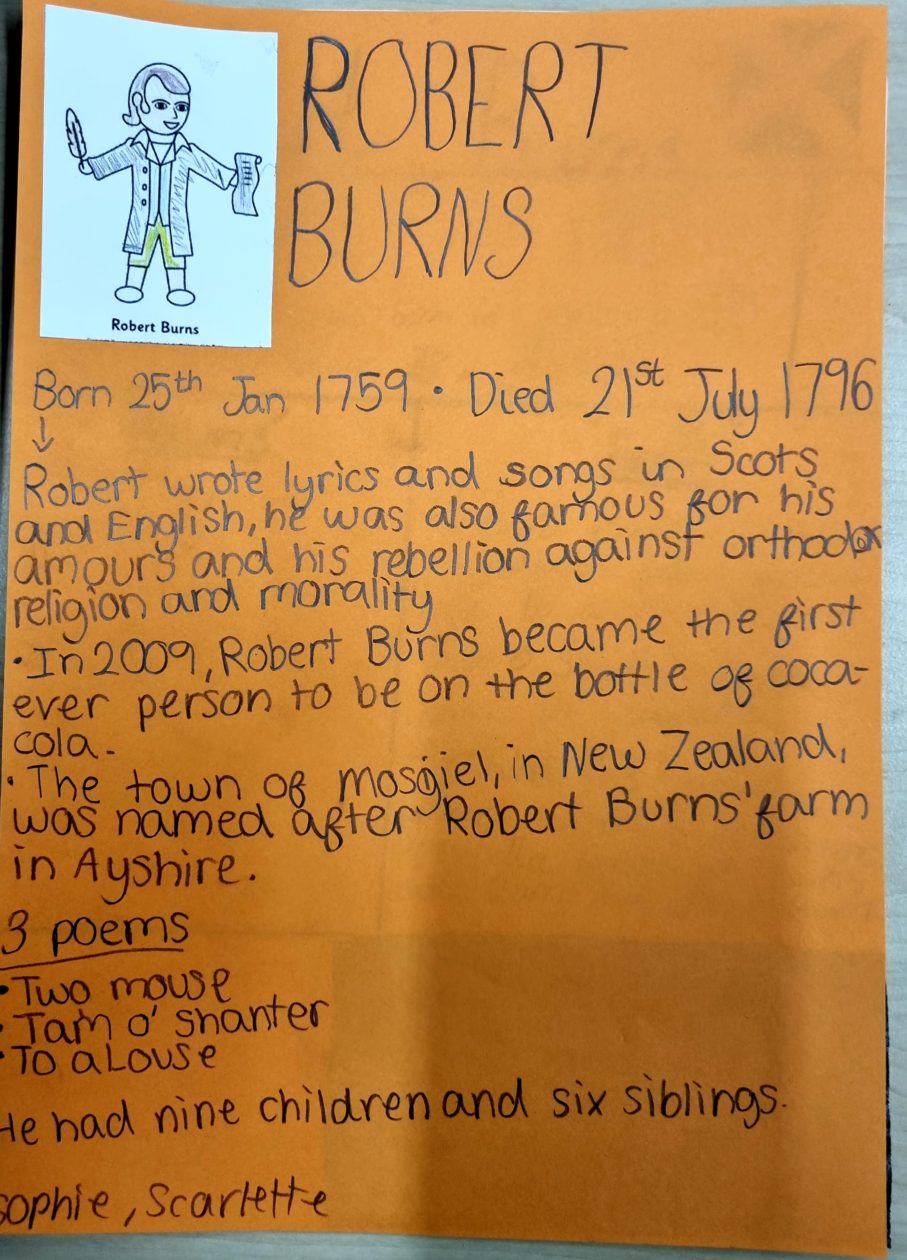 ROBERT
BURNS
Robert Burns
Born 25th Jan 1759 • Died 21st July 1796
↓
Robert wrote lyrics and songs in Scots
and English, he was also famous for his
amours and his rebellion against orthodox
religion and morality
• In 2009, Robert Burns became the first
ever person to be on the bottle of coca-
cola.
• The town of mosgiel, in New Zealand,
was named after Robert Burns' farm
in Ayshire.
3 poems
• Two mouse
• Tam o' shanter
• To a Louse
He had nine children and six siblings.
Sophie, Scarlette